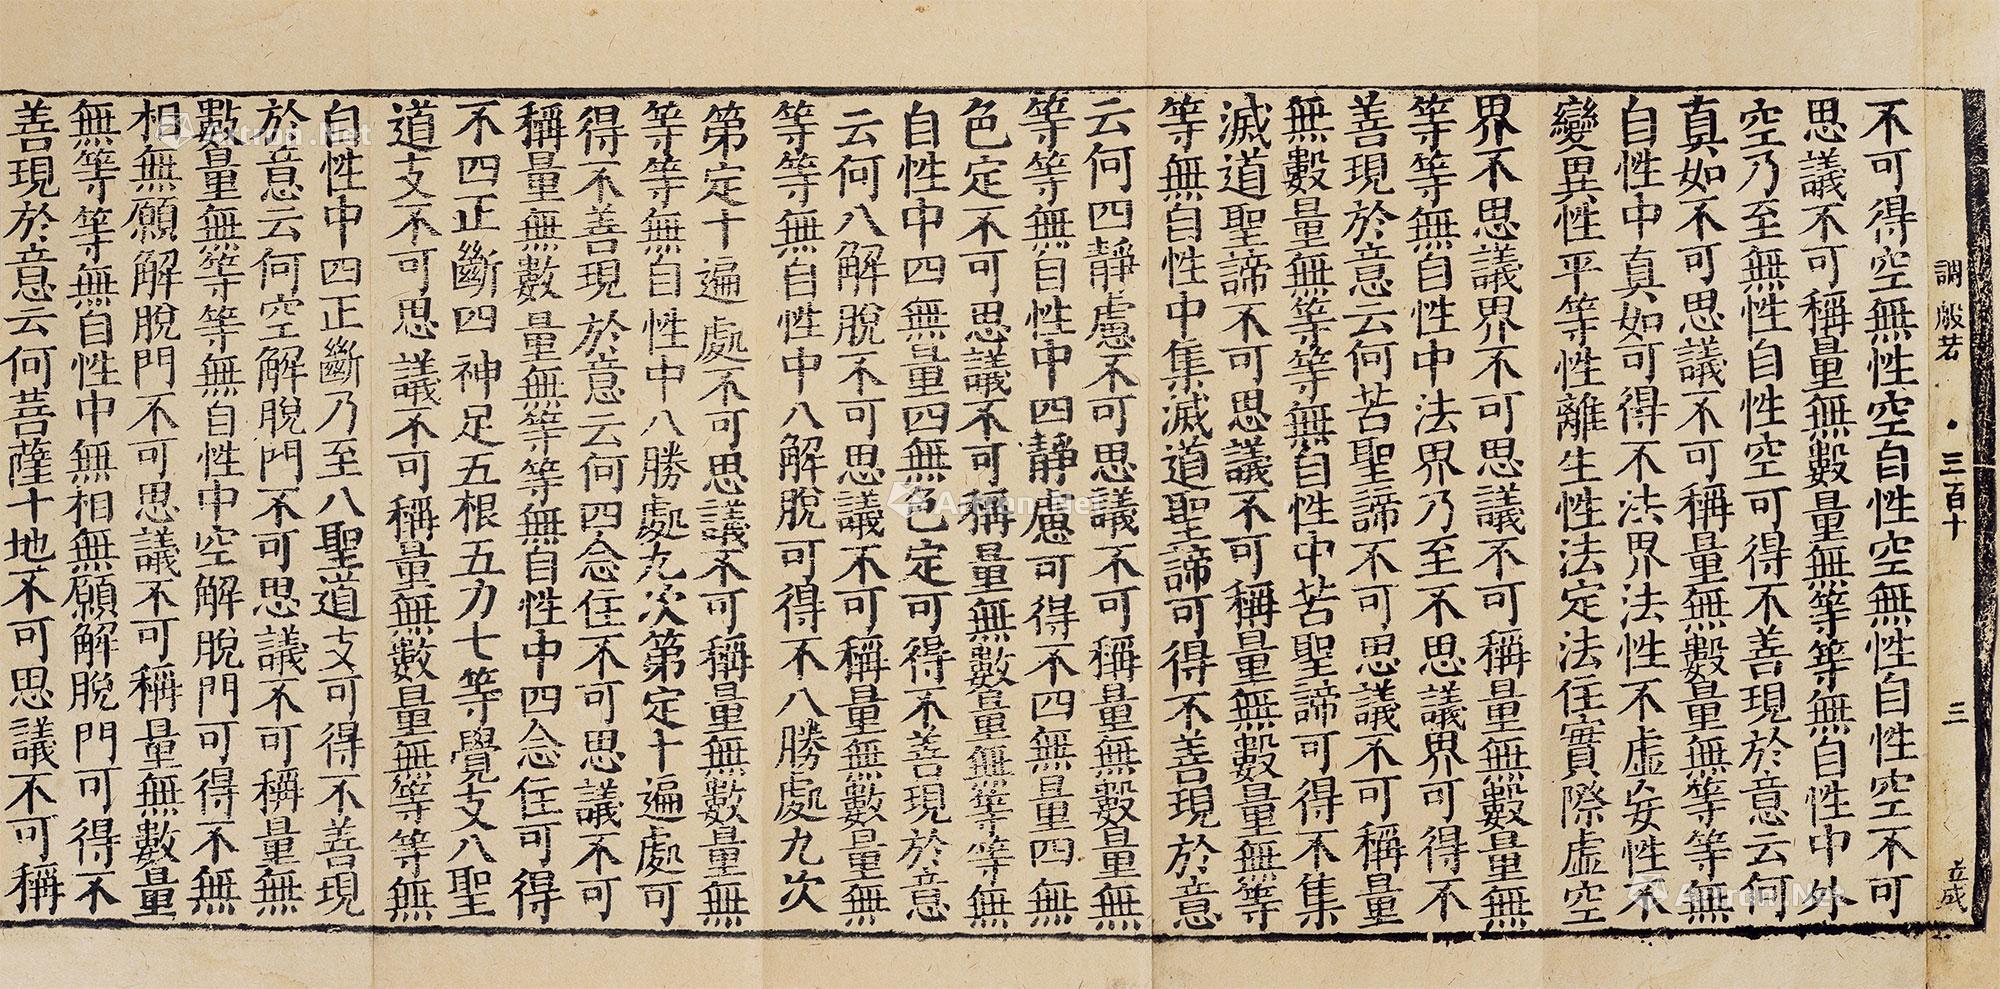 調 般若 · 三百十 三 立成
不可得空無性空自性空無性自性空不可
思議不可稱量無數量無等等無自性中外
空乃至無性自性空可得不善現於意云何
真如不可思議不可稱量無數量無等等無
自性中真如可得不法界法性不虛妄性不
變異性平等性離生性法定法住實際虛空
界不思議界不可思議不可稱量無數量無
等等無自性中法界乃至不思議界可得不
善現於意云何苦聖諦不可思議不可稱量
無數量無等等無自性中苦聖諦可得不集
滅道聖諦不可思議不可稱量無數量無等
等無自性中集滅道聖諦可得不善現於意
云何四靜慮不可思議不可稱量無數量無
等等無自性中四靜慮可得不四無量四無
色定不可思議不可稱量無數量無等等無
自性中四無量四無色定可得不善現於意
云何八解脫不可思議不可稱量無數量無
等等無自性中八解脫可得不八勝處九次
第定十遍處不可思議不可稱量無數量無
等等無自性中八勝處九次第定十遍處可
得不善現於意云何四念住不可思議不可
稱量無數量無等等無自性中四念住可得
不四正斷四神足五根五力七等覺支八聖
道支不可思議不可稱量無數量無等等無
自性中四正斷乃至八聖道支可得不善現
於意云何空解脫門不可思議不可稱量無
數量無等等無自性中空解脫門可得不無
相無願解脫門不可思議不可稱量無數量
無等等無自性中無相無願解脫門可得不
善現於意云何菩薩十地不可思議不可稱
Artron.Net
Artron.Net
Artron.Net
Artron.Net